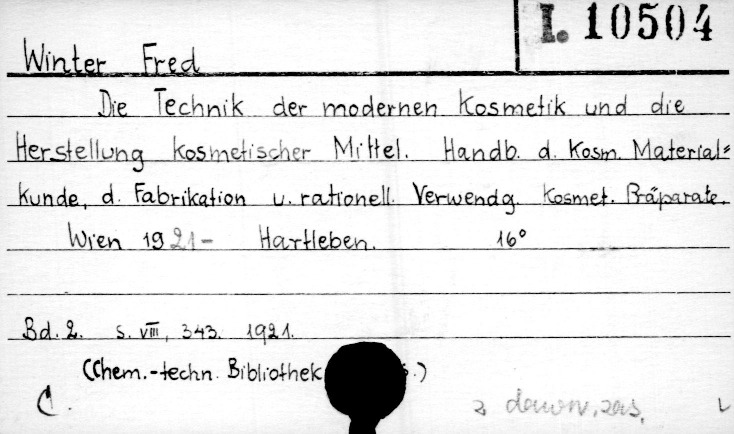 I. 10504
Winter Fred
Die Technik der modernen Kosmetik und die
Herstellung kosmetischer Mittel. Handb. d. Kosm. Material=
kunde, d. Fabrikation u. rationell. Verwendg. Kosmet. Präparate.
Wien 1921- Hartleben. 16°
Bd. 2. S. VIII, 343. 1921.
(Chem.-techn. Bibliothek .)
C.
z dawn. zas.